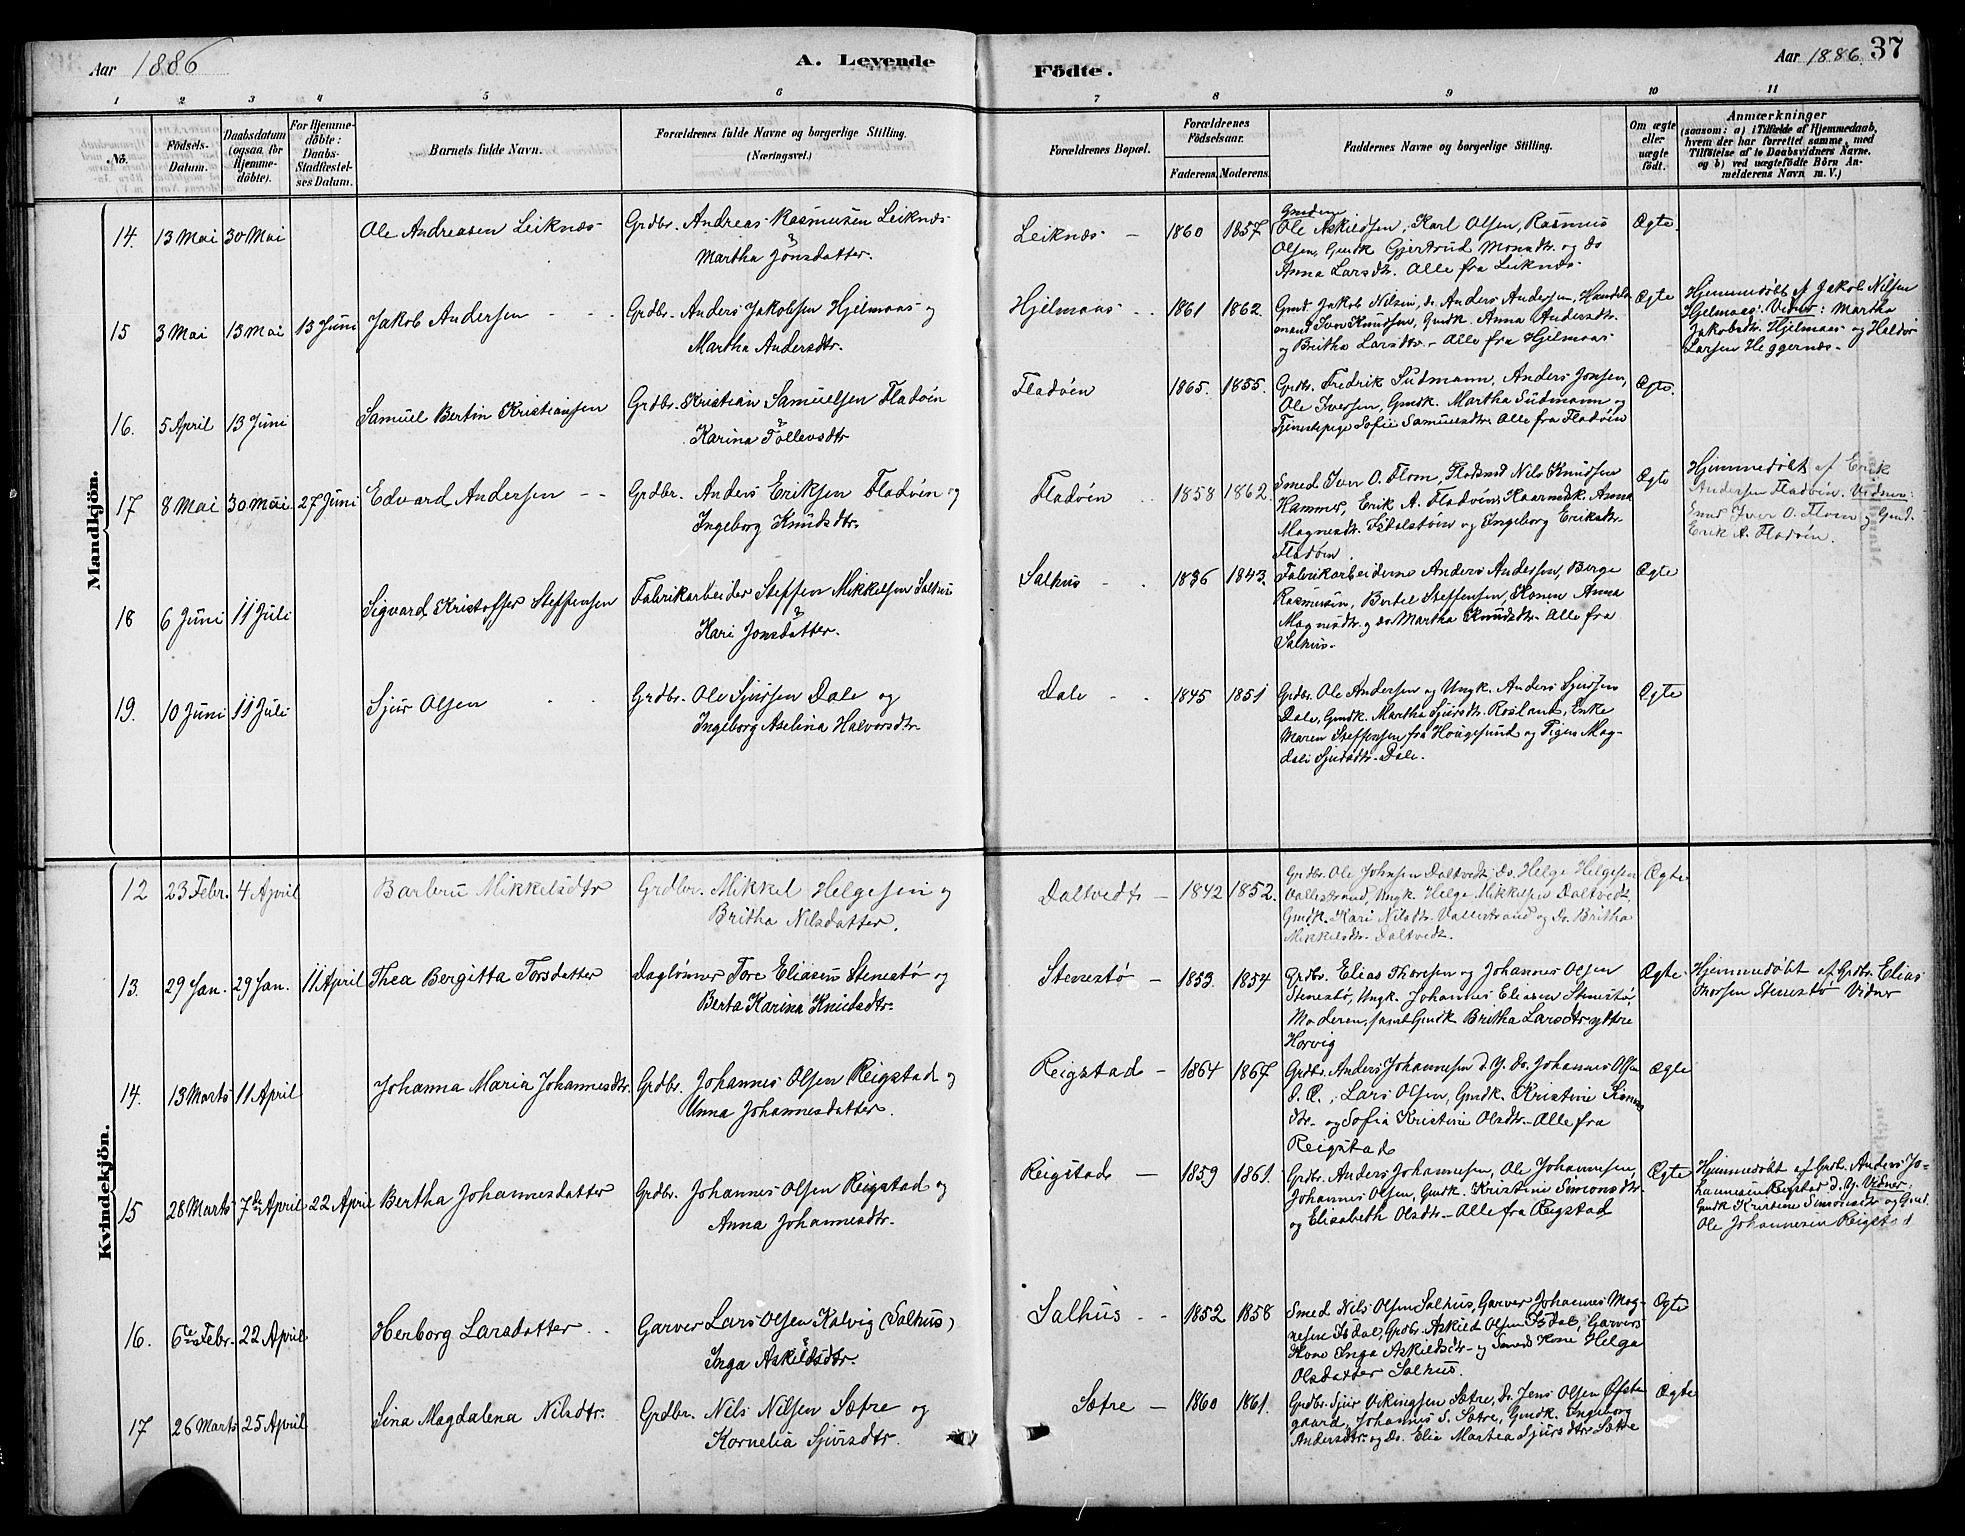 Aar 1886
A. Levende
Födte.
Aar 1886. 37
1 2 3 4 5 6 7 8 9 10 11
No.
Födsels-
Datum.
Daabsdatum
(ogsaa for
Hjemme-
döbte).
For Hjemme-
döbte:
Daabs-
Stadfæstel-
ses Datum.
Barnets fulde Navn.
Forældrenes fulde Navne og borgerlige Stilling.
(Næringsvei.)
Forældrenes Bopæl.
Forældrenes
Födselsaar.
Faderens. Moderens.
Faddernes Navne og borgerlige Stilling.
Om ægte
eller
uægte
födt.
Anmærkninger
(saasom: a) i Tilfælde af Hjemmedaab,
hvem der har forrettet samme, med
Tilföielse af to Daabsvidners Navne.
og b) ved uægtefödte Börn An-
melderens Navn m. V.)
Mandkjön.
14. 13 Mai 30 Mai Ole Andreasen Leiknæs Grdbr. Andreas Rasmusen Leiknæs
Martha Jonsdatter.
Leiknæs 1860 1857
Ole Askildsen, Karl Olsen, Rasmus
Olsen, Gmdk Gjertrud Monsdtr. og do
Anna Larsdtr. Alle fra Leiknæs.
Ægte.
15 3 Mai 13 Mai 13 Juni Jakob Andersen Grdbr. Anders Jakobsen Hjelmaas og
Martha Andersdtr.
Hjelmaas 1861 1862.
Gmd. Jakob Nilsen, do Anders Andersen, Handels
mand Iver Knudsen, Gmdk. Anna Andersdtr.
og Britha Larsdtr. - Alle fra Hjelmaas
Ægte
Hjemmedøbt af Jakob Nilsen
Hjelmaas. Vidner: Martha
Jakobsdtr. Hjelmaas og Haldor
Larsen Heggernæs.
16. 5 April 13 Juni Samuel Bertin Kristiansen Grdbr. Kristian Samuelsen Fladöen
Karina Tollevsdtr
Fladöen 1865. 1855.
Grdbr. Fredrik Sudmann, Anders Jonsen,
Ole Iversen, Gmdk. Martha Sudmann og
Tjenestepige Sofie Samuelsdtr. Alle fra Fladöen
Ægte.
17 8 Mai 30 Mai 27 Juni Edvard Andersen Grdbr. Anders Eriksen Fladvön og
Ingeborg Knudsdtr.
Fladöen 1858 1862.
Smed Iver O. Flom, Nils Knudsen
Hammer, Erik A. Fladöen, Anna
Magnesdtr. og Ingeborg Eriksdtr.
Fladöen
Ægte
Hjemmedøbt af Erik
Andersen Fladöen. Vidner:
Smed Iver O. Flom og Gmd.
Erik A. Fladöen.
18 6 Juni 11 Juli Sigvard Kristoffer Steffensen Fabrikarbeider Steffen Mikkelsen Salhus
Kari Jonsdatter.
Salhus 1836 1843.
Fabrikarbeiderne Anders Andersen, Berge
Rasmusen, Bertel Steffensen, Konen Anna
Magnesdtr. og do Martha Knudsdtr. Alle fra
Salhus.
Ægte
19. 10 Juni 11 Juli Sjur Olsen Grdbr. Ole Sjursen Dale og
Ingeborg Aselina Halvorsdtr.
Dale 1845 1851
Grdbr. Ole Andersen og Ungk. Anders Sjursen
Dale, Gmdk. Martha Sjursdtr. Rosland, Enke
Maren Steffensen fra Hougesund og Pigen Mag-
dali Sjursdtr. Dale.
Ægte
Kvindekjön.
12 23 Febr. 4 April Barbru Mikkelsdtr Grdbr. Mikkel Helgesen og
Britha Nilsdatter.
Daltvedt 1842 1852.
Grdbr. Ole Johnsen Daltvedt, do. Helge Helgesen
Vallestrand, Ungk. Helge Mikkelsen Daltvedt,
Gmdk. Kari Nilsdtr. Vallestrand og do. Britha
Mikkelsdtr. Daltvedt.
Ægte
13. 29 Jan. 29 Jan. 11 April Thea Bergitta Torsdatter Daglønner Tore Eliasen Stenestø og
Berta Karina Knudsdtr.
Stenestø 1853. 1854
Grdbr. Elias Thoresen og Johannes Olsen
Stenestø, Ungk. Johannes Eliasen Stenestø,
Moderen, samt Gmdk Britha Larsdtr. yttre
Horvig
Ægte
Hjemmedöbt af Grdbr. Elias
Thorsen Stenestø Vidner
14. 13 Marts 11 April Johanna Maria Johannesdtr. Grdbr. Johannes Olsen Reigstad og
Anna Johannesdatter.
Reigstad 1864 1867.
Grdbr. Anders Johannesen d. Y. do. Johannes Olsen
d. Æ., Lars Olsen, Gmdk. Kristine Simons
dtr. og Sofia Kristine Olsdtr. Alle fra
Reigstad
Ægte
15 28 Marts 7de April 22 April Bertha Johannesdatter Grdbr. Johannes Olsen Reigstad og
Anna Johannesdtr.
Reigstad 1859 1861.
Grdbr. Anders Johannesen, Ole Johannesen,
Johannes Olsen, Gmdk. Kristine Simonsdtr.
og Elisabeth Olsdtr. Alle fra Reigstad
Ægte
Hjemmedøbt af Grdb. Anders Jo-
hannesen Reigstad d. Y. Vidner:
Gmdk Kristine Simonsdtr og Gmd.
Ole Johannesen Reigstad
16. 6te Febr. 22 April Herborg Larsdatter Garver Lars Olsen Kalvig (Salhus)
Inga Askildsdtr.
Salhus 1852 1858
Smed Nils Olsen Salhus, Garver Johannes Mag-
nesen Isdal, Grdbr. Askild Olsen Isdal, Garvers
Kone Inga Askildsdtr. og Smeds Kone Helga
Olsdatter Salhus.
Ægte
17 26 Marts 25 April Sina Magdalena Nilsdtr. Grdbr. Nils Nilsen Sætre og
Kornelia Sjursdtr.
Sætre 1860 1861.
Grdbr. Sjur Vikingsen Sætre, do. Jens Olsen Øfste
gaard, Johannes S. Sætre, Gmdk. Ingeborg
Andersdtr. og do. Elia Martea Sjursdtr Sætre
Ægte